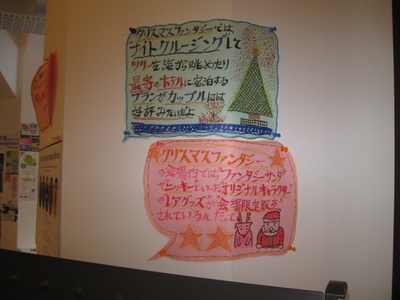 クリスマスファンタジーでは
ナイトクルージングして
ツリーを海から眺めたり
最寄のホテルに宿泊する
プランがカップルには
好評みたいだよ
クリスマスファンタジー
の会場内では"ファンタジーサンタ"
や"ニッキー"といったオリジナルキャラクター
の"レアグッズ"が会場限定販売
されているんだって